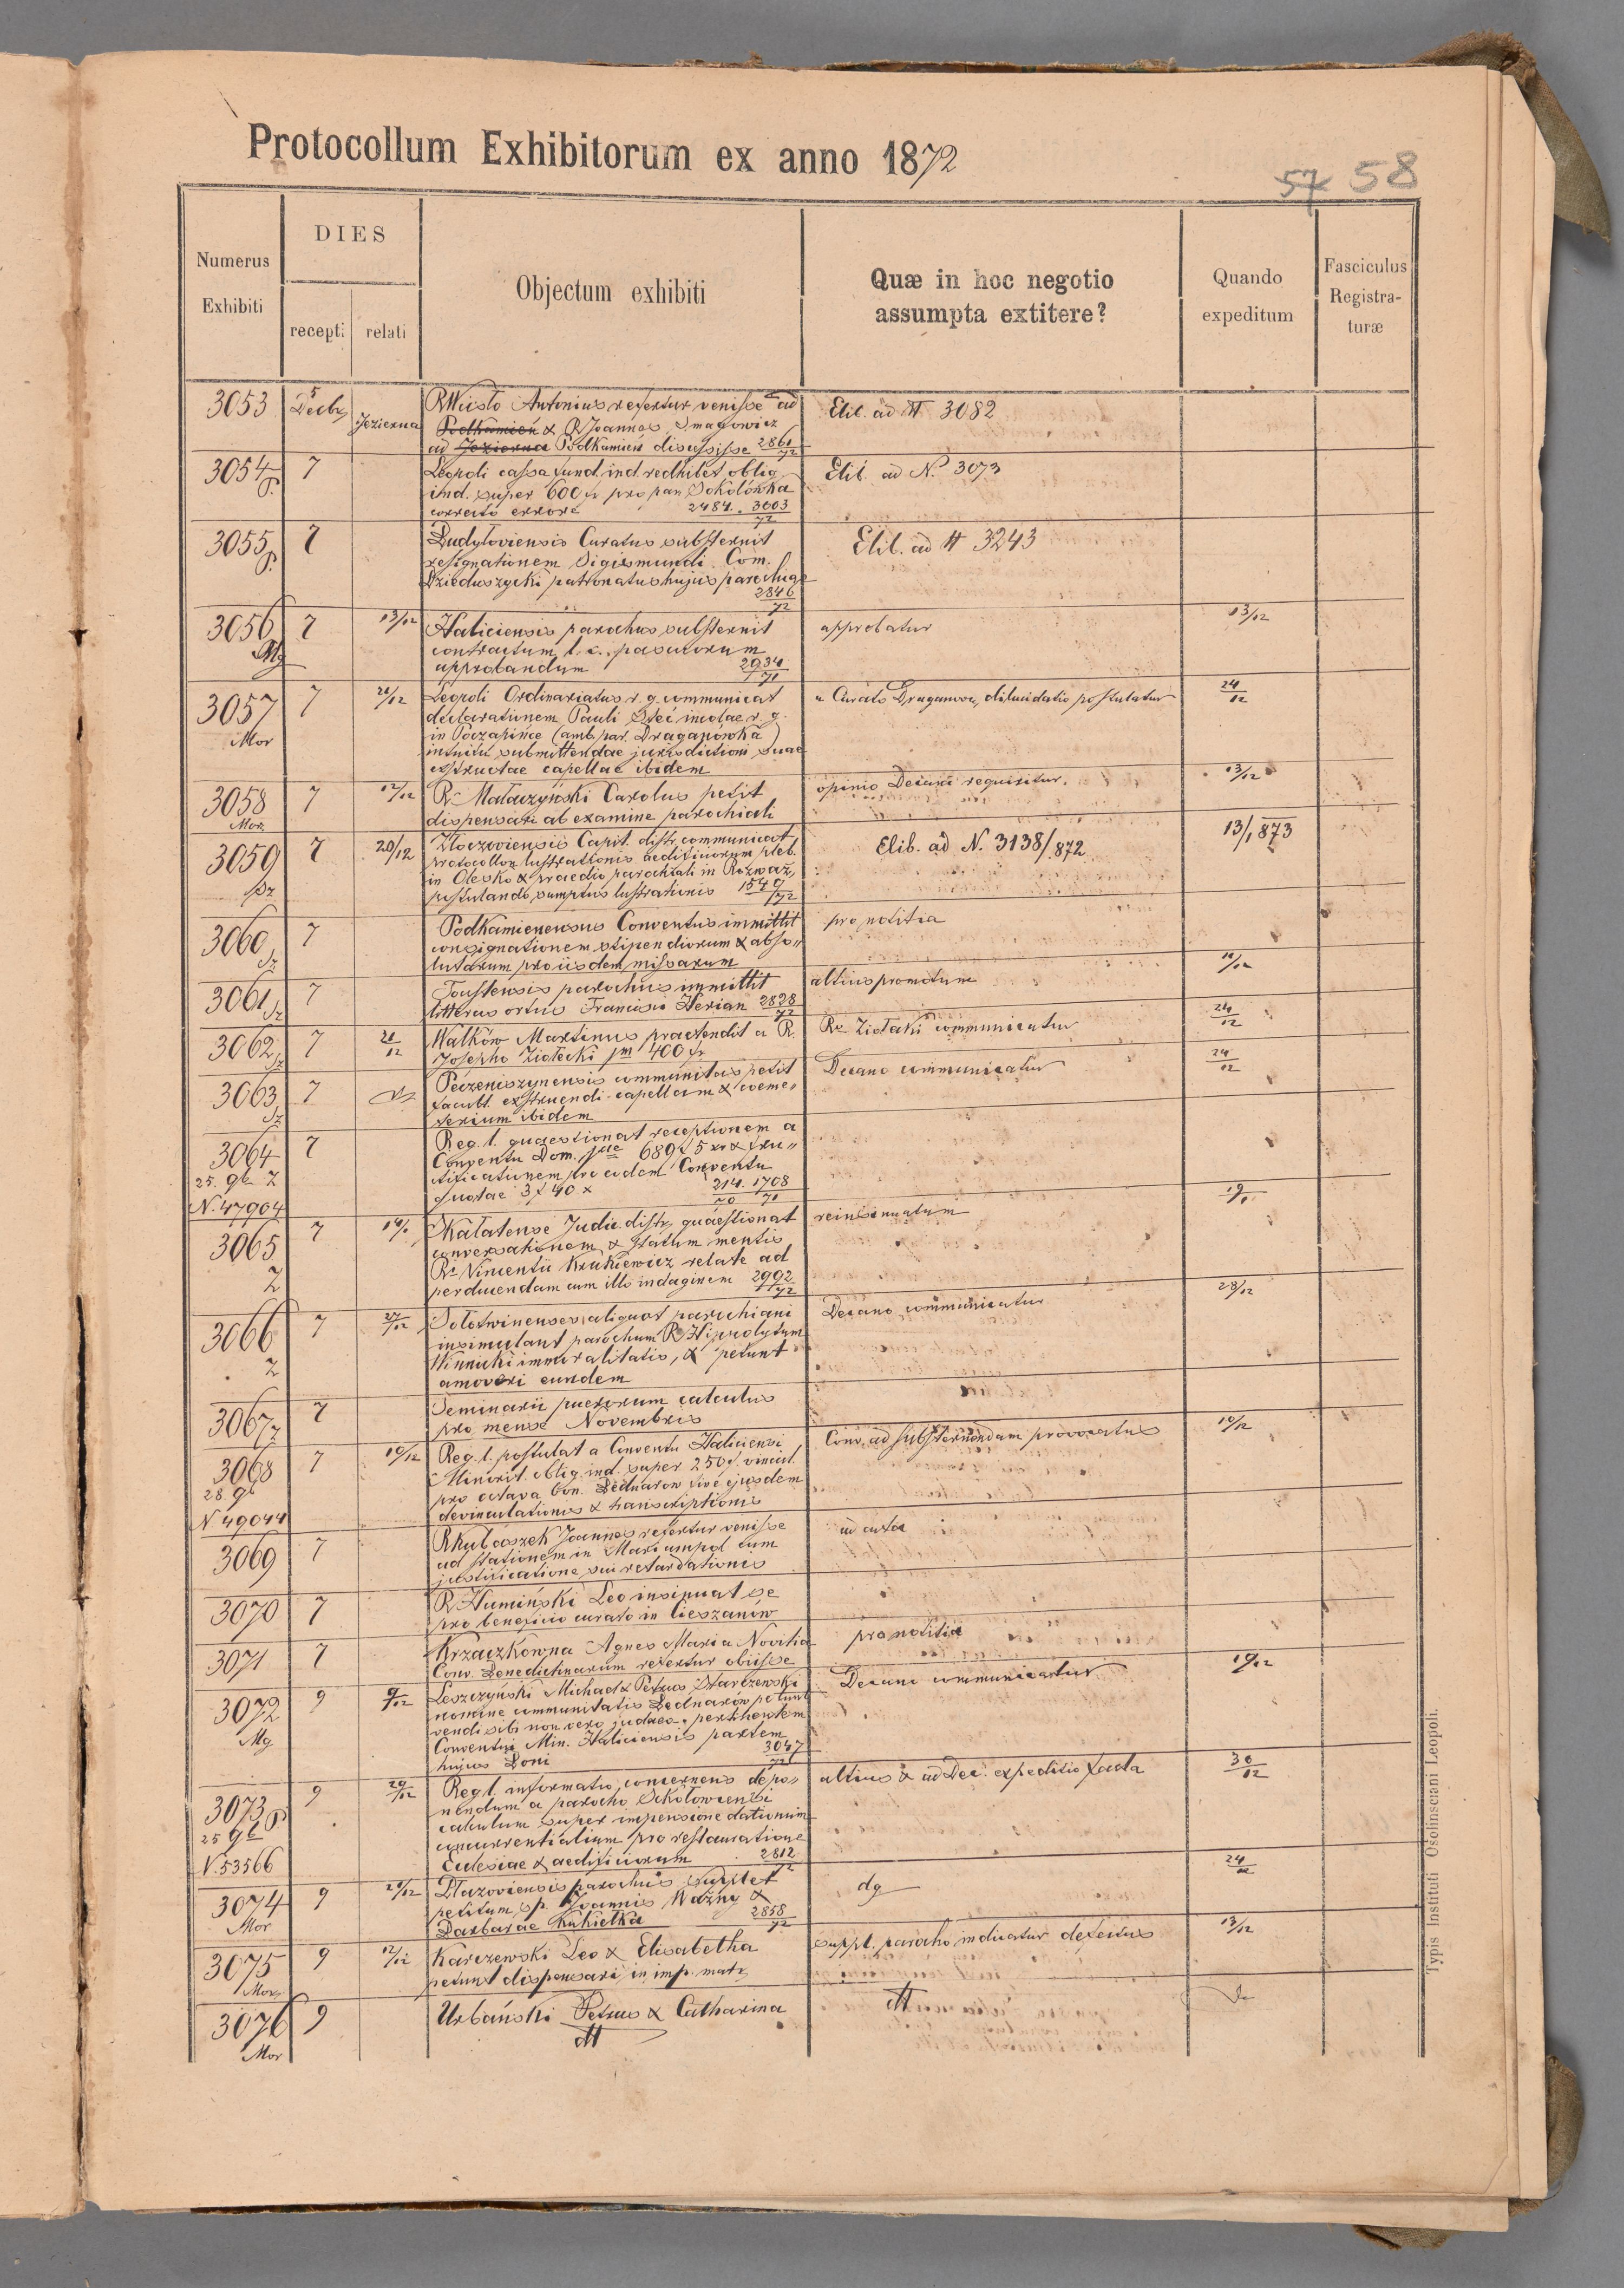 Protocollum Exhibitorum ex anno 1872
57 58
Numerus Exhibiti
DIES
recepti
relati
Objectum exhibiti
Quæ in hoc negotio assumpta extitere?
Quando expeditum
Fasciculus Registra-turæ
3053 5 Decbr Jezierna R Wiesło Antonius refertur venisse ad Elib. ad N 3082
Podkamień & R Joannes
ad Jezierna Podkamień discessisse 2861/72
3054 P. 7 Leopoli cassa fund. ind. redhibet oblig. Elib. ad N. 3073
ind. super 600 fr pro par. Sokolówka
correcto errore 2484. 3003/72
3055 P. 7 Dudyloviensis Curatus substernit Elib. ad N 3243
resignationem Sigismundi Com.
Dzieduszycki patronatus hujus parochiae
2846/72
3056 Mg 7 13/12 Haliciensis parochus substernit approbatur 13/12
contractum l. c. pascuorum
approbandum 2934/71
3057 Mor 7 21/12 Leopoli Ordinariatus r. g. communicat a Curato Draganov. dilucidatio postulatur 24/12
declarationem Pauli Steć incolae r. g.
in Poczapińce (amb. par. Draganówka)
intuitu submittendae jurisdictioni suae
exstructae capellae ibidem
3058 Mor. 7 12/12 R. Mataczyński Carolus petit opinio Decani requiritur. 13/12
dispensari ab examine parochiali
3059 7 20/12 Złoczoviensis Capit. distr. communicat Elib. ad N. 3138/872 13/1 873
protocollon lustrationis aedificiorum pleb.
in Olesko & praedio parochiali in Rożważ,
postulando sumptus lustrationis 1549/72
3060 Sz 7 Podkamienensis Conventus immittit pro notitia
consignationem stipendiorum & abso-
lutarum pro iisdem missarum
3061 Sz 7 Toustensis parochus immittit altius promotum 10/12
litteras ortus Francisci Herian 2828/72
3062 Sz 7 21/12 Walków Martinus praetendit a R. Ro Ziołecki communicatur 24/12
Josepho Ziołecki 400 fr
3063 Sz 7 Peczeniszynensis communitas petit Decano communicatur 24/12
facult. exstruendi capellam & coeme-
terium ibidem
3064 7 Reg. l. quaestionat receptionem a
25. 9b Z Conventu Dom. 689 f 5 xr & fru-
N. 47904 ctificationem pro eodem Conventu
quotae 3 f 40 x 214/70 1708/71
3065 Z 7 Skałatense Judic. distr. quaestionat reinsinuatum
conversationem & statum mentis
R. Vincentii Krukiewicz relate ad
perducendam cum illo indaginem 2992/72
3066 Z 7 27/12 Sołotwinenses aliquot parochiani Decano communicatur 28/12
insimulant parochum R. Hippolytum
Winnicki immoralitatis, & petunt
amoveri eundem
3067 Z 7 Seminarii puerorum calculus
pro mense Novembris
3068 7 10/12 Reg. l. postulat a Conventu Haliciensi Conv. ad substernendam provocatus 10/12
28. 9b Minorit. oblig. ind. super 250 f. vincul.
N 49044 pro octava bon. Bednarow sive ejusdem
devinculationis & transcriptionis
3069 7 R Kulcoszek Joannes refertur venisse ad acta
ad stationem in Mariampol cum
justificatione sui retardationis
3070 7 R Humiński Leo insinuat se
pro beneficio curato in Cieszanów
3071 7 Krzaczkówna Agnes Maria Novitia pro notitia
Conv. Benedictinarum refertur obiisse
3072 Mg 9 9/12 Leszczyński Michael & Petrus Starczewski Decano communicatur 19/12
nomine communitatis Bednarów petunt
vendi sibi non vero judaeo, pertinentem
Conventui Min. Haliciensis partem
hujus Boni 3047/72
3073 P 9 29/12 Reg l. informatio concernens depo- altius & ad Dec. expeditio facta 30/12
25 9b nendum a parocho Sokolowiensi
N. 53566 calculum super impensione dationum
concurrentialium pro restauratione
Ecclesiae & aedificiorum 2812/72
3074 Mor 9 21/12 parochus supplet dg 24/12
petitum sp. Joannis Ważny &
Barbarae Kukiełka 2858/72
3075 Mor. 9 12/12 Karczewski Leo & Elisabetha suppl. parocho indicatur defectus 13/12
petunt dispensari in imp. matr.
3076 Mor 9 Urbański Petrus & Catharina dtt
dtt
Typis Instituti Ossolinsciani Leopoli.